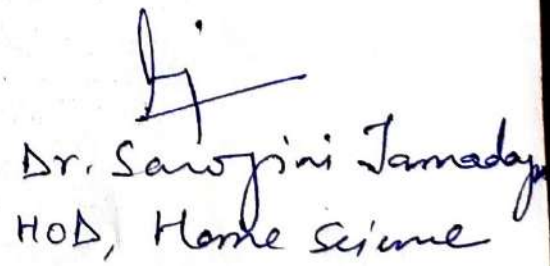 Dr. Sarojini Jamadap
HOD, Home Science